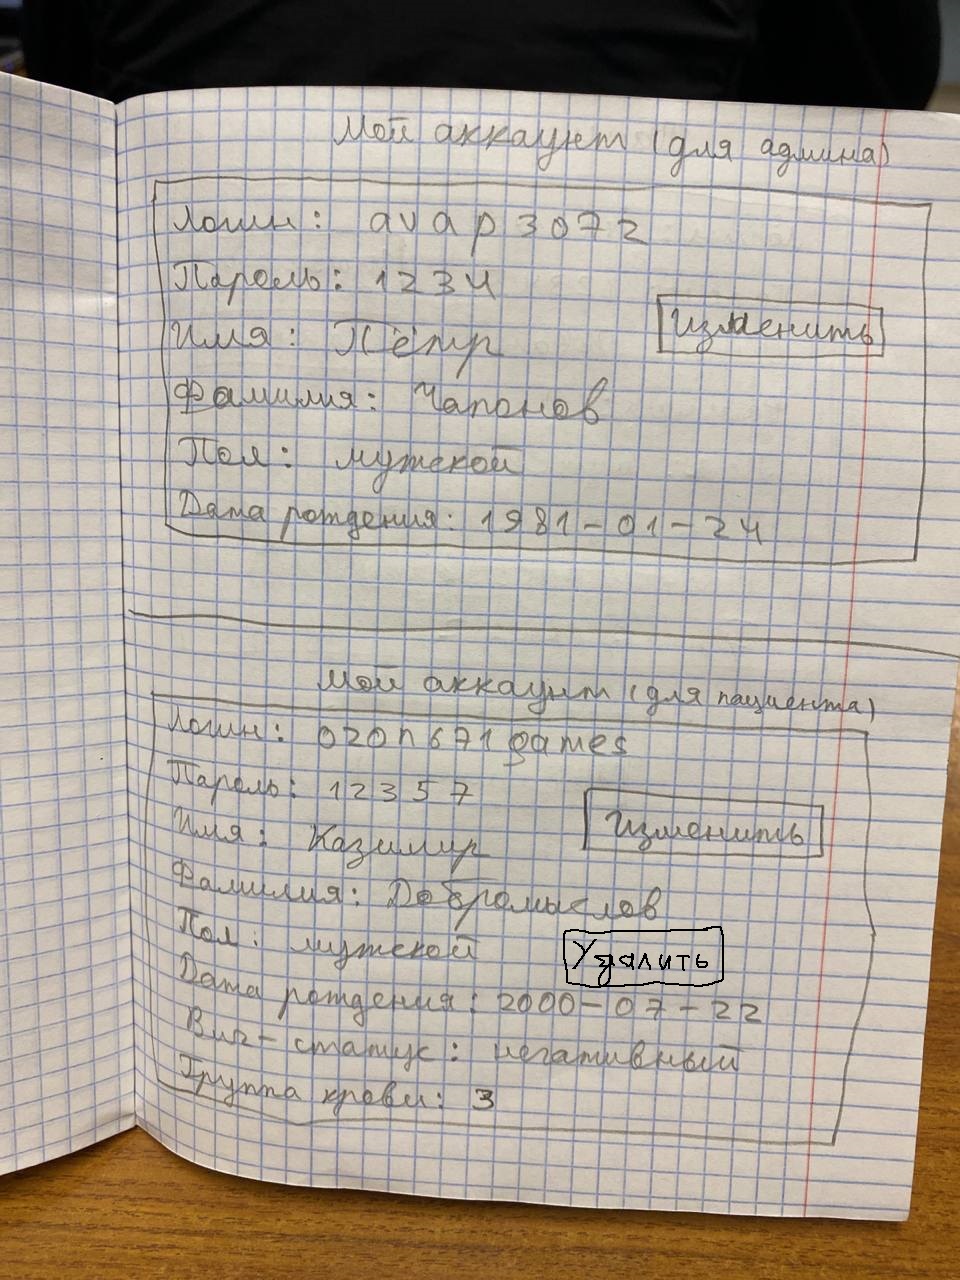 Мой аккаунт (для админа)
Логин: avap3072
Пароль: 1234
Имя: Пётр
Изменить
Фамилия: Чапонов
Пол: мужской
Дата рождения: 1981-01-24
Мой аккаунт (для пациента)
Логин: ozon671games
Пароль: 12357
Имя: Казимир
Изменить
Фамилия: Добромыслов
Пол: мужской
Удалить
Дата рождения: 2000-07-22
Вич-статус: негативный
Группа крови: 3